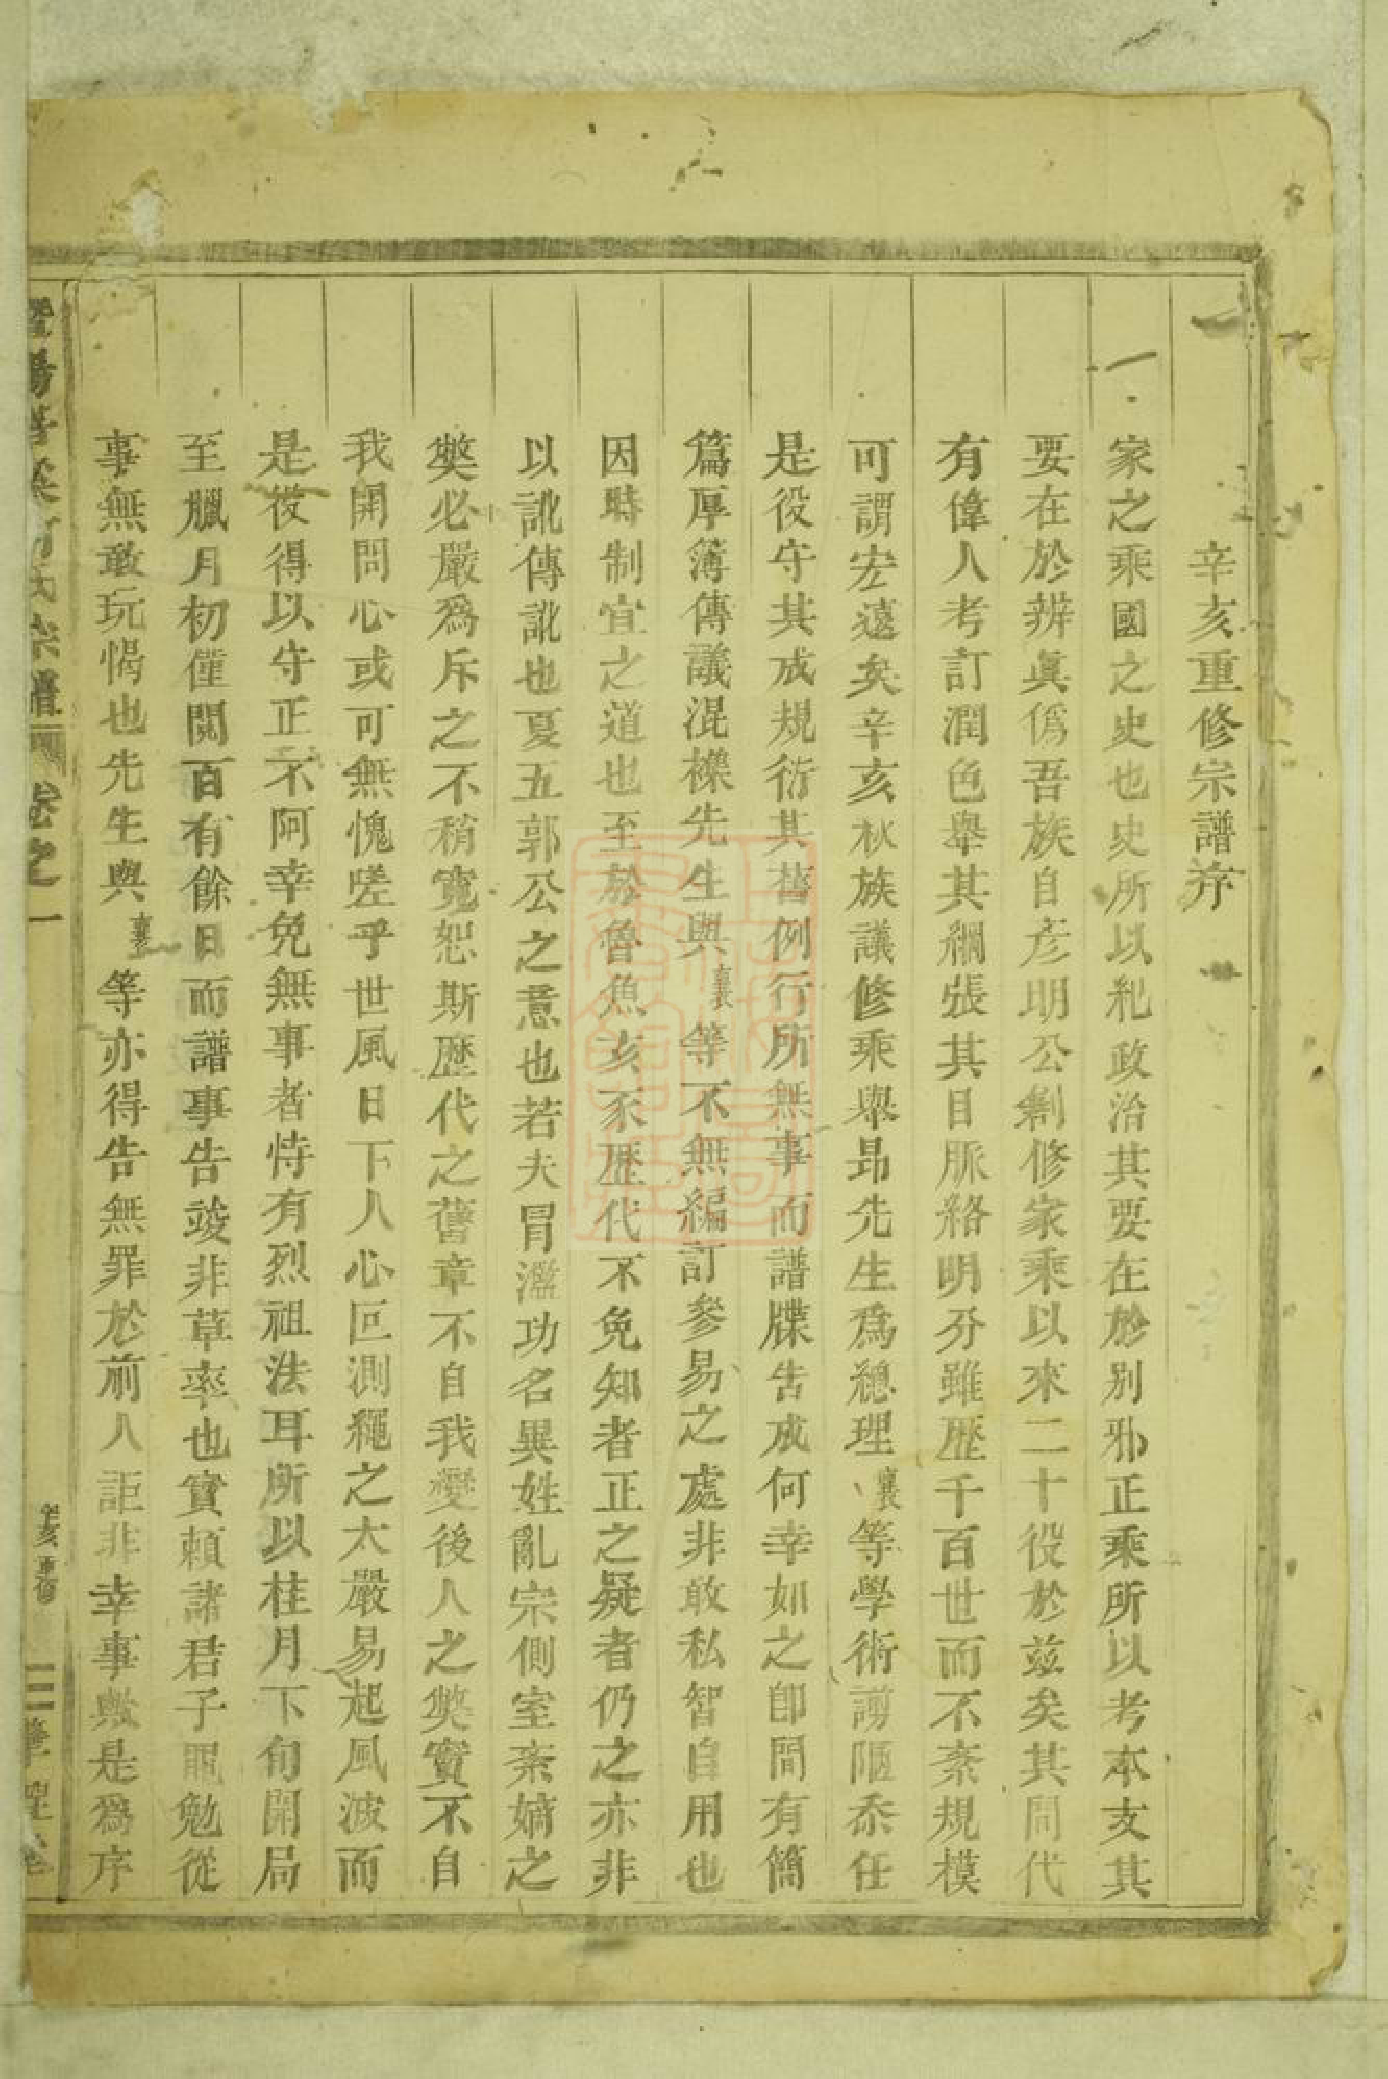 辛亥重修宗譜序
家之乘國之史也史所以紀政治其要在於別邪正乘所以考本支其
要在於辨眞僞吾族自彥明公剏修家乘以來二十役於茲矣其間代
有偉人考訂潤色舉其綱張其目脈絡明分雖歷千百世而不紊規模
可謂宏遠矣辛亥秋族議修乘舉昂先生爲總理襄等學術謭陋忝任
是役守其成規衍其舊例行所無事而譜牒告成何幸如之卽間有簡
篇厚簿傳議混襍先生與襄等不無編訂參易之處非敢私智自用也
因時制宜之道也至於魯魚亥豕歷代不免知者正之疑者仍之亦非
以訛傳訛也夏五郭公之意也若夫冐濫功名異姓亂宗側室紊嫡之
獘必嚴爲斥之不稍寬恕斯歷代之舊章不自我變後人之獘實不自
我開問心或可無愧嗟乎世風日下人心叵測繩之太嚴易起風波而
是役得以守正不阿幸免無事者恃有烈祖法耳所以桂月下旬開局
至臘月初僅閱百有餘日而譜事告竣非草率也實賴諸君子黽勉從
事無敢玩愒也先生與襄等亦得告無罪於前人詎非幸事歟是爲序
宗譜 卷之一
辛亥重修